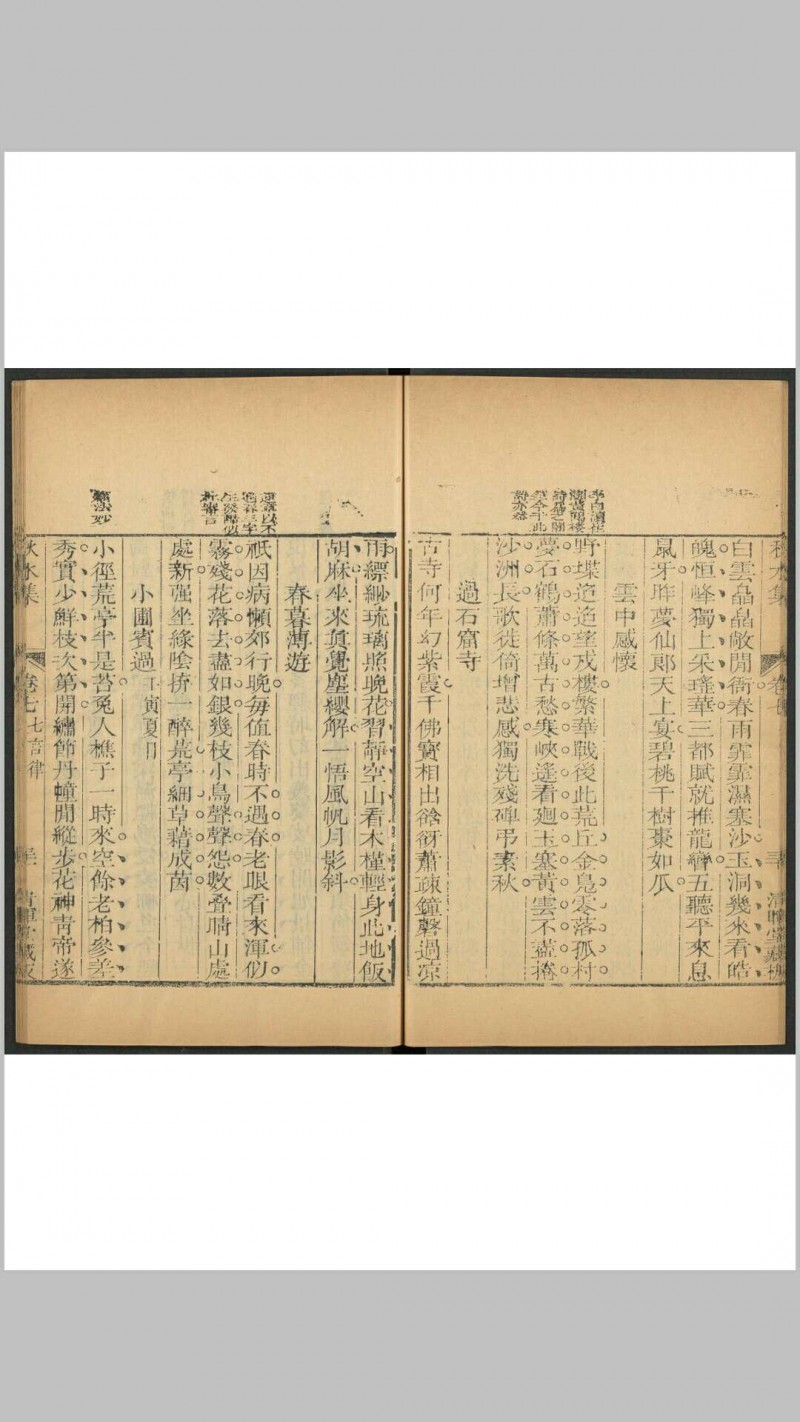 白雲晶晶敞閒衙春雨霏霏濕塞沙玉洞幾來看皓
魄恒峰獨上采瑤華三都賦就推龍五聽平來息
鼠牙昨夢仙郞天上宴碧桃千樹棗如瓜
雲中感懷
野堞迢迢望戍樓繁華戰後此荒丘金鳧零落孤村
夢石鶴蕭條萬古愁寒峽遙看廻玉塞黃雲不盡捲
沙洲長歌徙倚增悲感獨洗殘碑弔素秋
過石窟寺
古寺何年幻紫霞千佛寶相出谽谺蕭疎鐘磬過凉
雨縹緲琉璃照晚花習靜空山看木槿輕身此地飯
胡麻坐來眞覺塵纓解一悟風帆月影斜
春暮薄遊
祇因病懶郊行晚每値春時不遇春老眼看來渾似
霧殘花落去盡如銀幾枝小鳥聲聲怨數叠晴山處
處新强坐綠陰拚一醉荒亭細草藉成茵
小圃賓過壬寅夏日
小徑荒亭半是苔寃人樵子一時來空餘老柏參差
秀實少鮮枝次第開繡節丹幢閒縱步花神靑帝遂
秋水集 卷七七言律